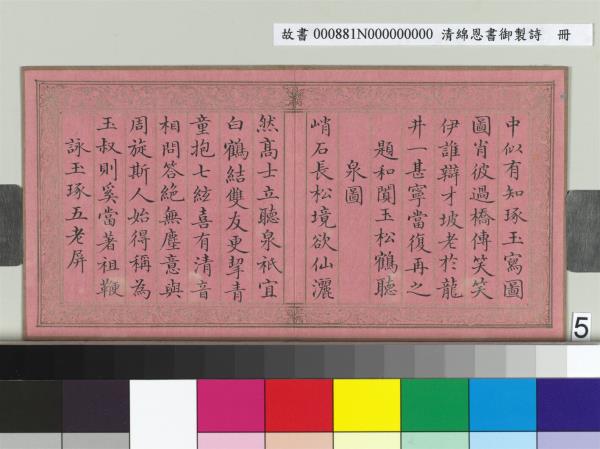 故書 000881N000000000 清綿恩書御製詩 冊
中似有知琢玉寫圖
圖肖彼過橋傳笑笑
伊誰辯才坡老於龍
井一甚寧當復再之
題和闐玉松鶴聽
泉圖
峭石長松境欲仙灑
然高士立聽泉祇宜
白鶴結雙友更挈青
童抱七絃喜有清音
相問答絕無塵意與
周旋斯人始得稱為
玉叔則奚當著祖鞭
詠玉琢五老屏
5